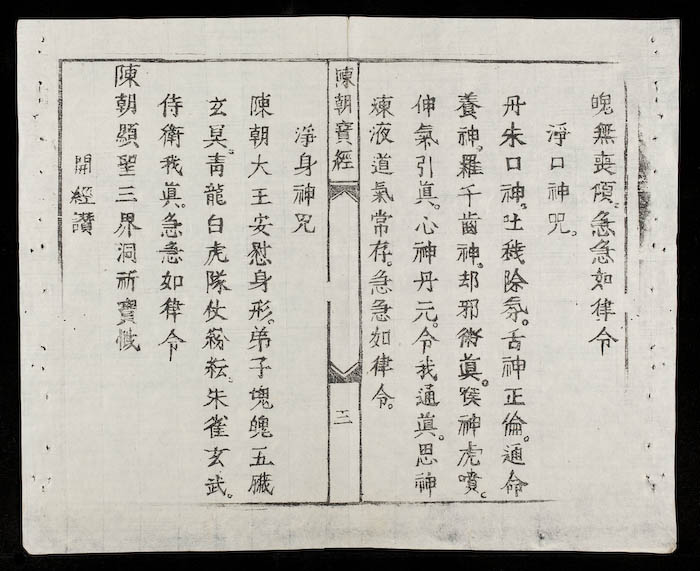 魄無喪傾。急急如律令
淨口神咒。
丹朱口神。吐穢除氛。舌神正倫。通命
養神。羅千齒神。却邪衛眞。喉神虎噴。
伸氣引眞。心神丹元。令我通眞。思神
煉液道氣常存。急急如律令。
陳朝寶經
三
淨身神咒
陳朝大王安慰身形。弟子魂魄五臟
玄冥。青龍白虎隊仗紛紜。朱雀玄武。
侍衛我眞。急急如律令
陳朝顯聖三界洞祈寶懺
開經讚